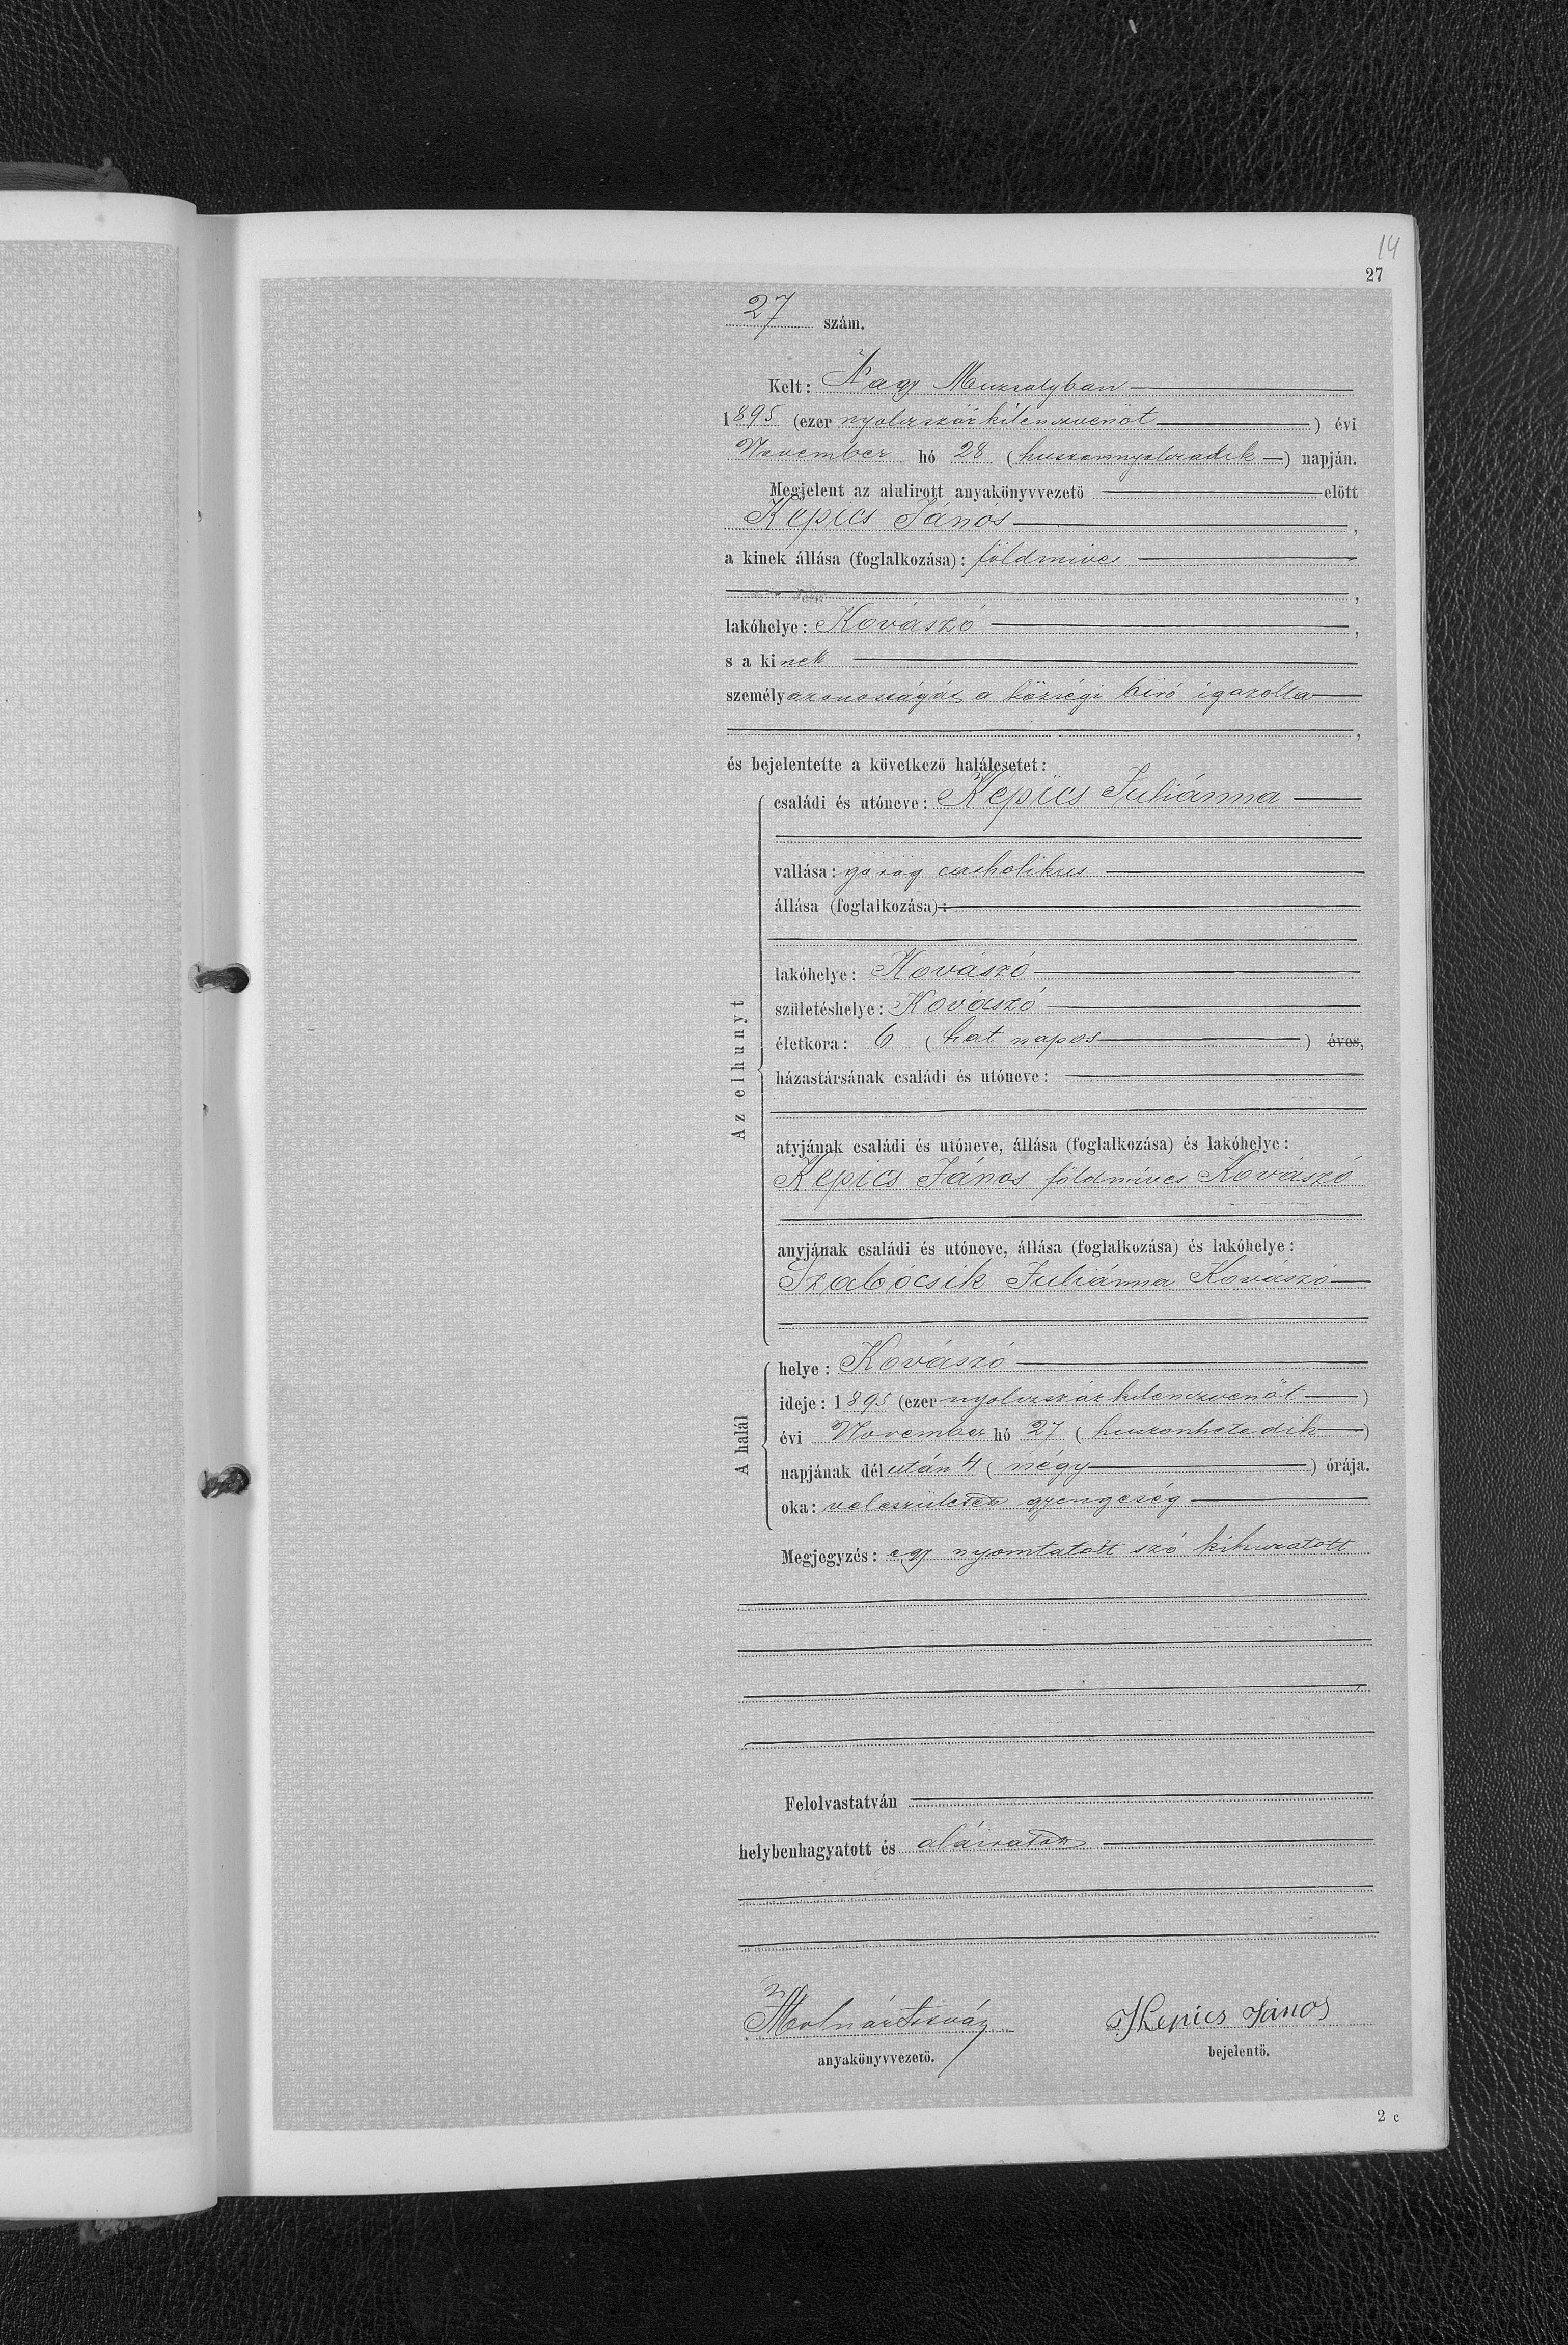 14
27
27 szám.
Kelt: Nagy Muzsalyban
1895 (ezer nyolczszázkilenczvenöt) évi
November hó 28 (huszonnyolczadik) napján.
Megjelent az alulirott anyakönyvvezető előtt
Kepics János,
a kinek állása (foglalkozása): földmives
,
lakóhelye: Kovászó,
s a kinek
személyazonosságát a községi biró igazolta
,
és bejelentette a következő halálesetet:
Az elhunyt
családi és utóneve: Kepics Juliánna
vallása: görög catholikus
állása (foglalkozása):
lakóhelye: Kovászó
születéshelye: Kovászó
életkora: 6 (hat napos) éves,
házastársának családi és utóneve:
atyjának családi és utóneve, állása (foglalkozása) és lakóhelye:
Kepics János földmives Kovászó
anyjának családi és utóneve, állása (foglalkozása) és lakóhelye:
Szabócsik Juliánna Kovászó
A halál
helye: Kovászó
ideje: 1895 (ezer nyolczszázkilenczvenöt)
évi November hó 27 (huszonhetedik)
napjának délután 4 (négy) órája.
oka: veleszületett gyengeség
Megjegyzés: egy nyomtatott szó kihuzatott
Felolvastatván
helybenhagyatott és aláiratott
Molnár István
anyakönyvvezető.
Kepics János
bejelentő.
2 c